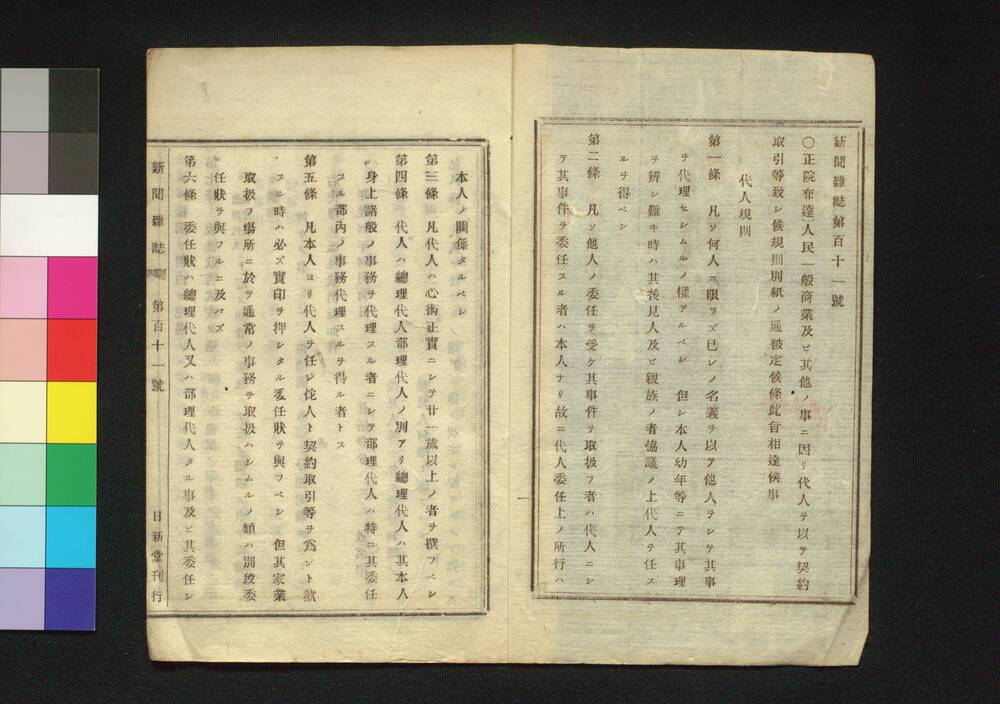 新聞雜誌第百十一號
〇正院布達人民一般商業及ヒ其他ノ事ニ因リ代人ヲ以テ契約
取引等致シ候規則別紙ノ通被定候條此旨相達候事
代人規則
第一條 凡ソ何人ニ限ラズ已レノ名義ヲ以テ他人ヲシテ其事
ヲ代理セシムルノ權アルベシ 但シ本人幼年等ニテ其事理
ヲ辨シ難キ時ハ其後見人及ビ親族ノ者協議ノ上代人ヲ任ス
ルヲ得ベシ
第二條 凡ソ他人ノ委任ヲ受ケ其事件ヲ取扱フ者ハ代人ニシ
テ其事件ヲ委任スル者ハ本人ナリ故ニ代人委任上ノ所行ハ
一
本人ノ關係タルベシ
第三條 凡代人ハ心術正實ニシテ廿一歳以上ノ者ヲ撰フベシ
第四條 代人ハ總理代人部理代人ノ別アリ總理代人ハ其本人
身上諸般ノ事務ヲ代理スル者ニシテ部理代人ハ特ニ其委任
スル部内ノ事務代理スルヲ得ル者トス
第五條 凡本人ヨリ代人ヲ任シ侘人ト契約取引等ヲ爲ント欲
スル時ハ必ズ實印ヲ押シタル委任狀ヲ與フベシ 但其家業
取扱フ塲所ニ於テ通常ノ事務ヲ取扱ハシムルノ類ハ別段委
任狀ヲ與フルニ及バズ
第六條 委任狀ハ總理代人又ハ部理代人タル事及ビ其委任シ
新聞雜誌 第百十一號 日新堂刊行